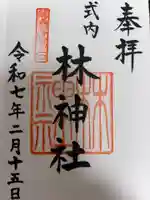 奉拝
式内
林神社
令和七年二月十五日